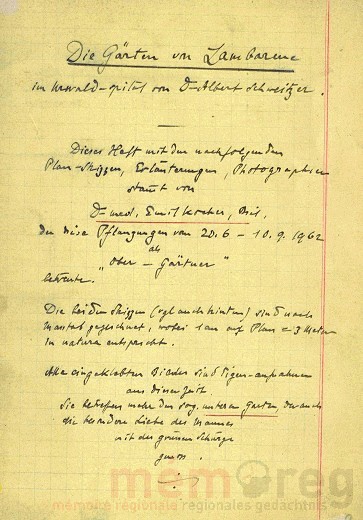 Die Gärten von Lambarene
im Urwald-spital von Dr Albert Schweitzer.
Dieses Heft mit den nachfolgenden
Plan-Skizzen, Erläuterungen, Photographien
stammt von
Dr med. Emil Kocher, Biel,
der diese Pflanzungen vom 20.6 - 10.9.1962
als
"Ober - Gärtner"
betreute.
Die beiden Skizzen (vgl auch hinten) sind nach
Masstab gezeichnet, wobei 1 cm auf Plan = 3 Meter
in natura entspricht.
Alle eingeklebten Bilder sind Eigen-aufnahmen
aus dieser Zeit.
Sie betreffen mehr den sog. unteren Garten, der auch
die besondere Liebe des Mannes
mit der grünen Schürze
genoss.
memoreg
mémoire régionale regionales gedächtnis